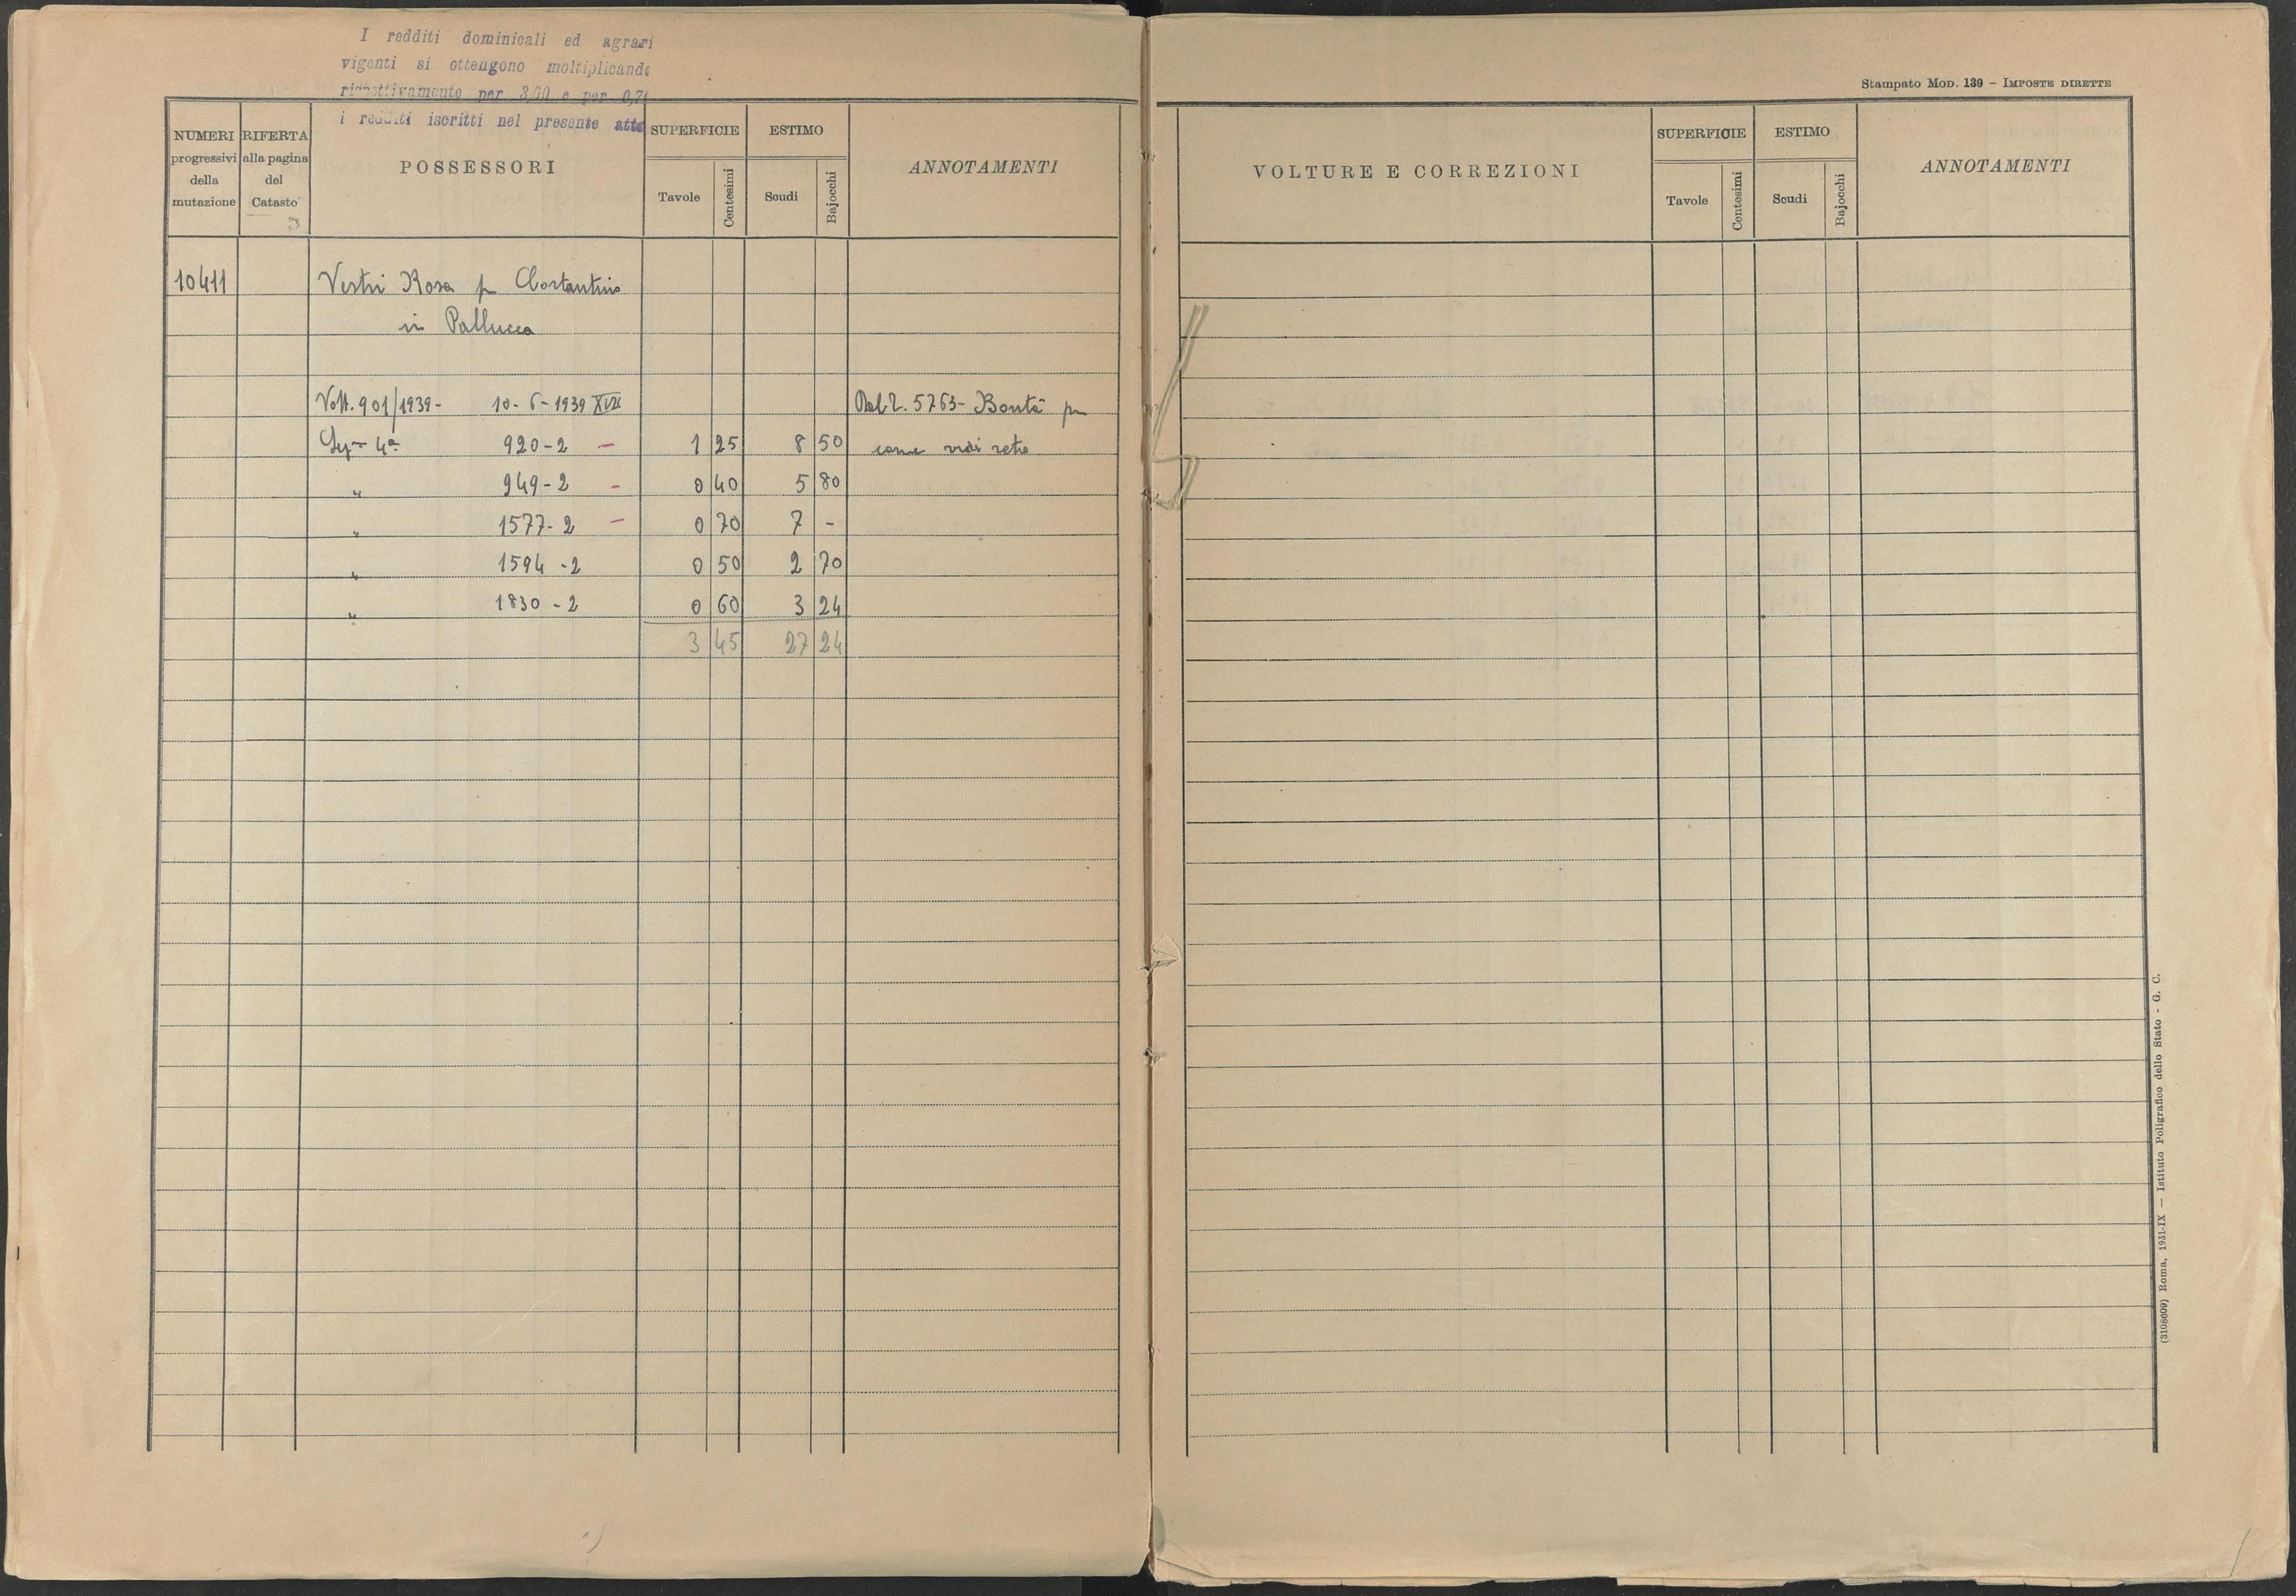 I redditi dominicali ed agrari
vigenti si ottengono moltiplicando
rispettivamente per 3,00 e per 0,7
i redditi iscritti nel presente atto
NUMERI progressivi della mutazione
RIFERTA alla pagina del Catasto
POSSESSORI
SUPERFICIE
Tavole
Centesimi
ESTIMO
Scudi
Bajocchi
ANNOTAMENTI
10411 Vestri Rosa fu Costantino
in Pallucca
Volt. 901/1939- 10-6-1939 XVII Dal 2. 5763- Bontà fu
4ª 920-2 – 1 25 8 50 come vedi retro
" 949-2 – 0 40 5 80
" 1577-2 – 0 70 7 -
" 1594-2 0 50 2 70
" 1830-2 0 60 3 24
3 45 27 24
Stampato Mod. 139 – Imposte dirette
VOLTURE E CORREZIONI
SUPERFICIE
Tavole
Centesimi
ESTIMO
Scudi
Bajocchi
ANNOTAMENTI
(3108609) Roma, 1931-IX — Istituto Poligrafico dello Stato - G. C.